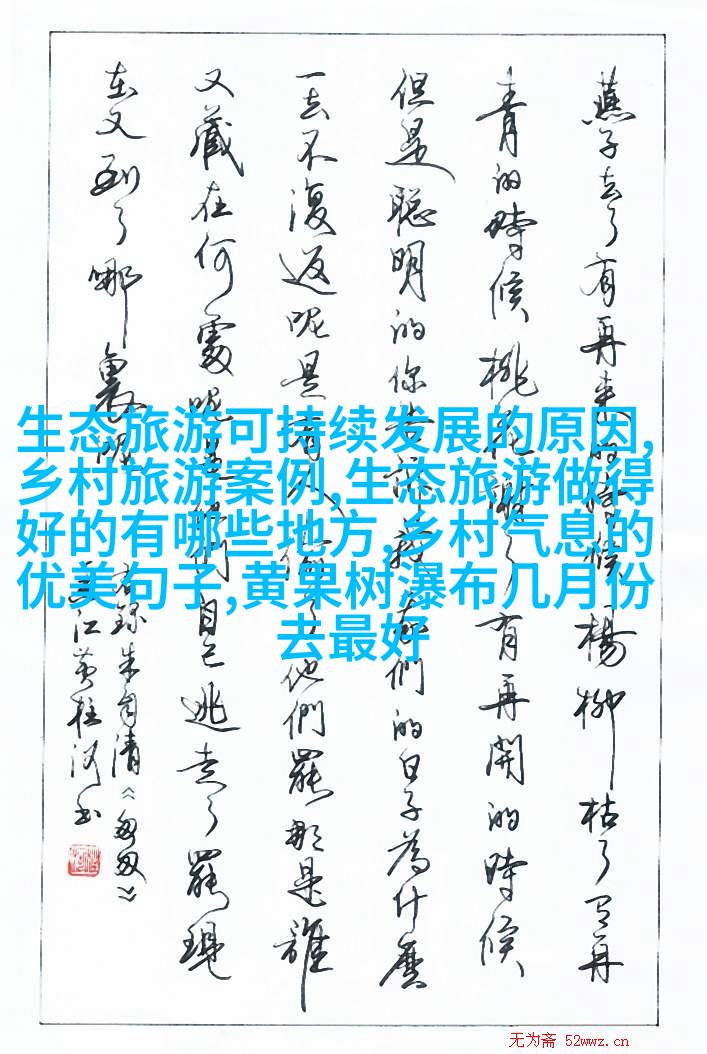 燕子去了有再来的時候楊柳枯了有再
青的時候桃花謝了有再開的時候
但是聪明的你告訴我我們的日子為什麼
一去不復返呢是有人偷了他們罷那是誰
又藏在何處呢是他們自己逃走了罷現
在又到了哪裏呢
右録朱自清《匆匆》
江黄桂河书
生态旅游可持续发展的原因,
乡村旅游案例,生态旅游做得
好的有哪些地方,乡村气息的
优美句子,黄果树瀑布几月份
去最好
无为斋 52wwz.cn